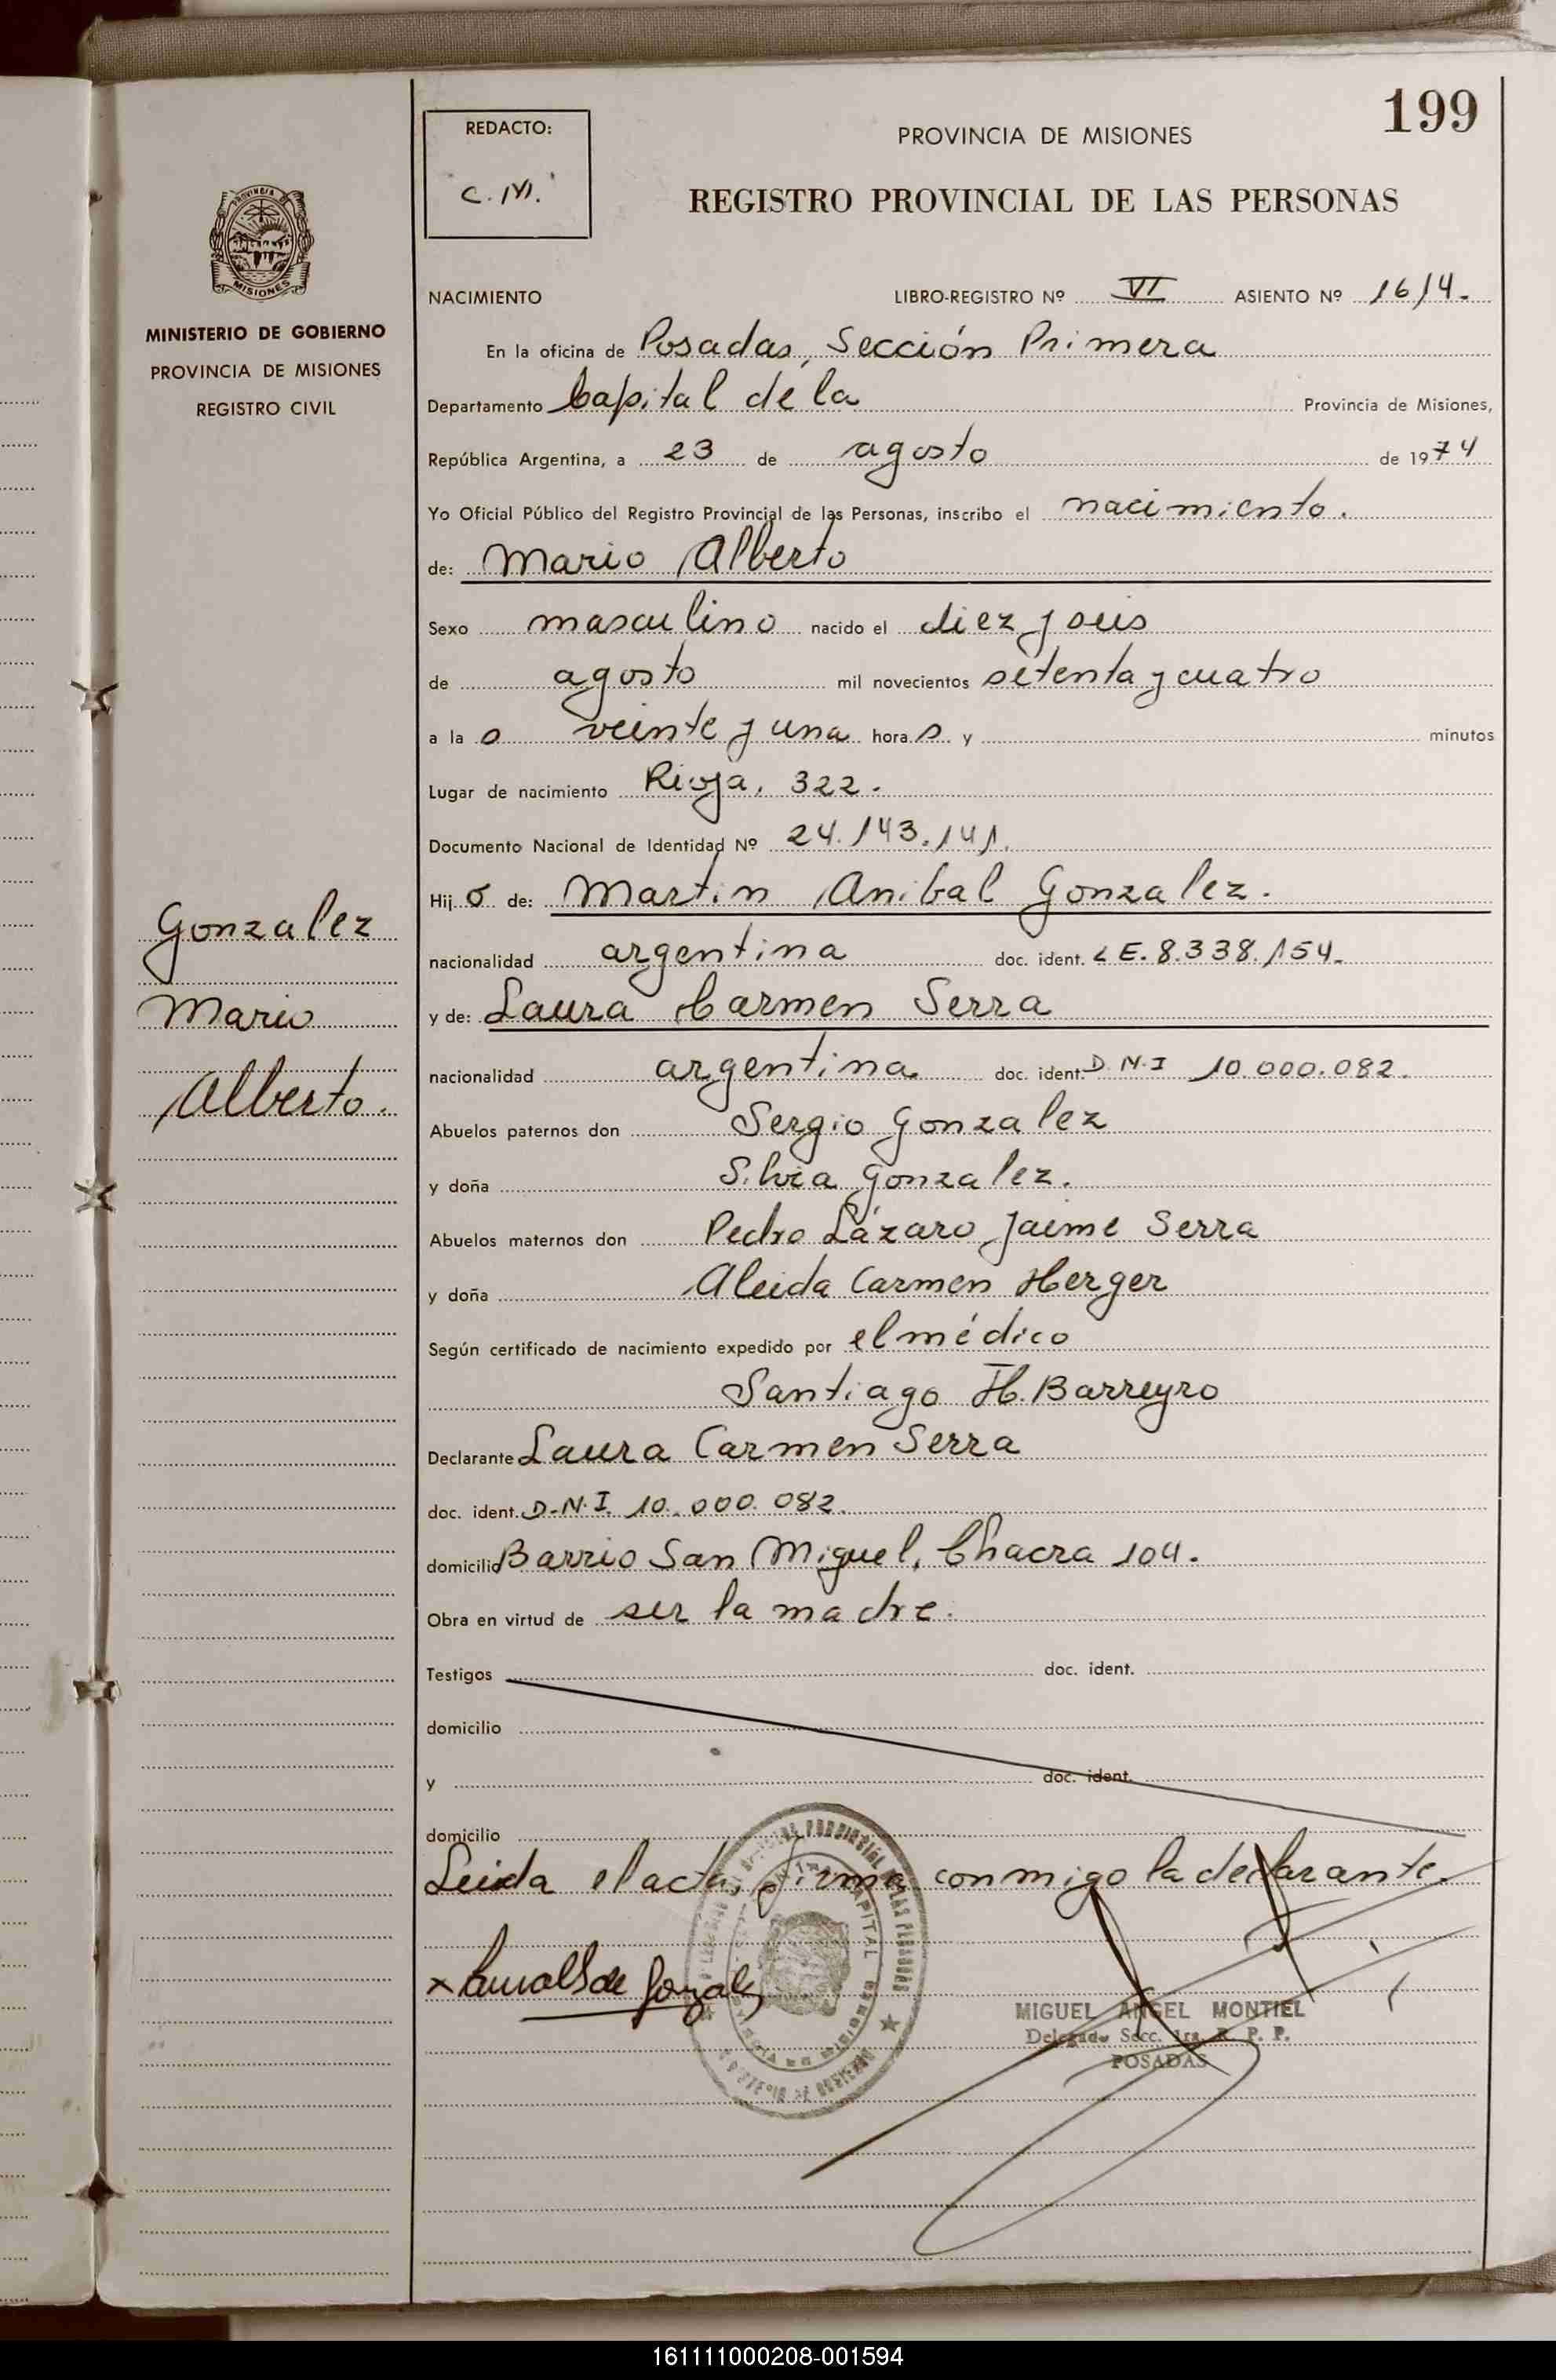 199
REDACTO:
C. M.
PROVINCIA DE MISIONES
REGISTRO PROVINCIAL DE LAS PERSONAS
PROVINCIA DE
MISIONES
MINISTERIO DE GOBIERNO
PROVINCIA DE MISIONES
REGISTRO CIVIL
Gonzalez
Mario
Alberto.
NACIMIENTO LIBRO-REGISTRO Nº VI ASIENTO Nº 1614.
En la oficina de Posadas, Sección Primera
Departamento Capital de la Provincia de Misiones,
República Argentina, a 23 de agosto de 1974
Yo Oficial Público del Registro Provincial de las Personas, inscribo el nacimiento.
de: Mario Alberto
Sexo masculino nacido el diez y seis
de agosto mil novecientos setenta y cuatro
a la s veinte y una hora s y minutos
Lugar de nacimiento Rioja, 322.
Documento Nacional de Identidad Nº 24.143.141.
Hij o de: Martin Anibal Gonzalez.
nacionalidad argentina doc. ident. L E. 8.338.154.
y de: Laura Carmen Serra
nacionalidad argentina doc. ident. D. N. I 10.000.082.
Abuelos paternos don Sergio Gonzalez
y doña Silvia Gonzalez.
Abuelos maternos don Pedro Lázaro Jaime Serra
y doña Aleida Carmen Herger
Según certificado de nacimiento expedido por el médico
Santiago H. Barreyro
Declarante Laura Carmen Serra
doc. ident. D.N.I. 10.000.082.
domicilio Barrio San Miguel, Chacra 104.
Obra en virtud de ser la madre.
Testigos doc. ident.
domicilio
y doc. ident.
domicilio
Leida el acta, firma conmigo la declarante.
x Laura S de Gonzalez
MIGUEL ANGEL MONTIEL
Delegado Secc. 1ra. R. P. P.
POSADAS
161111000208-001594